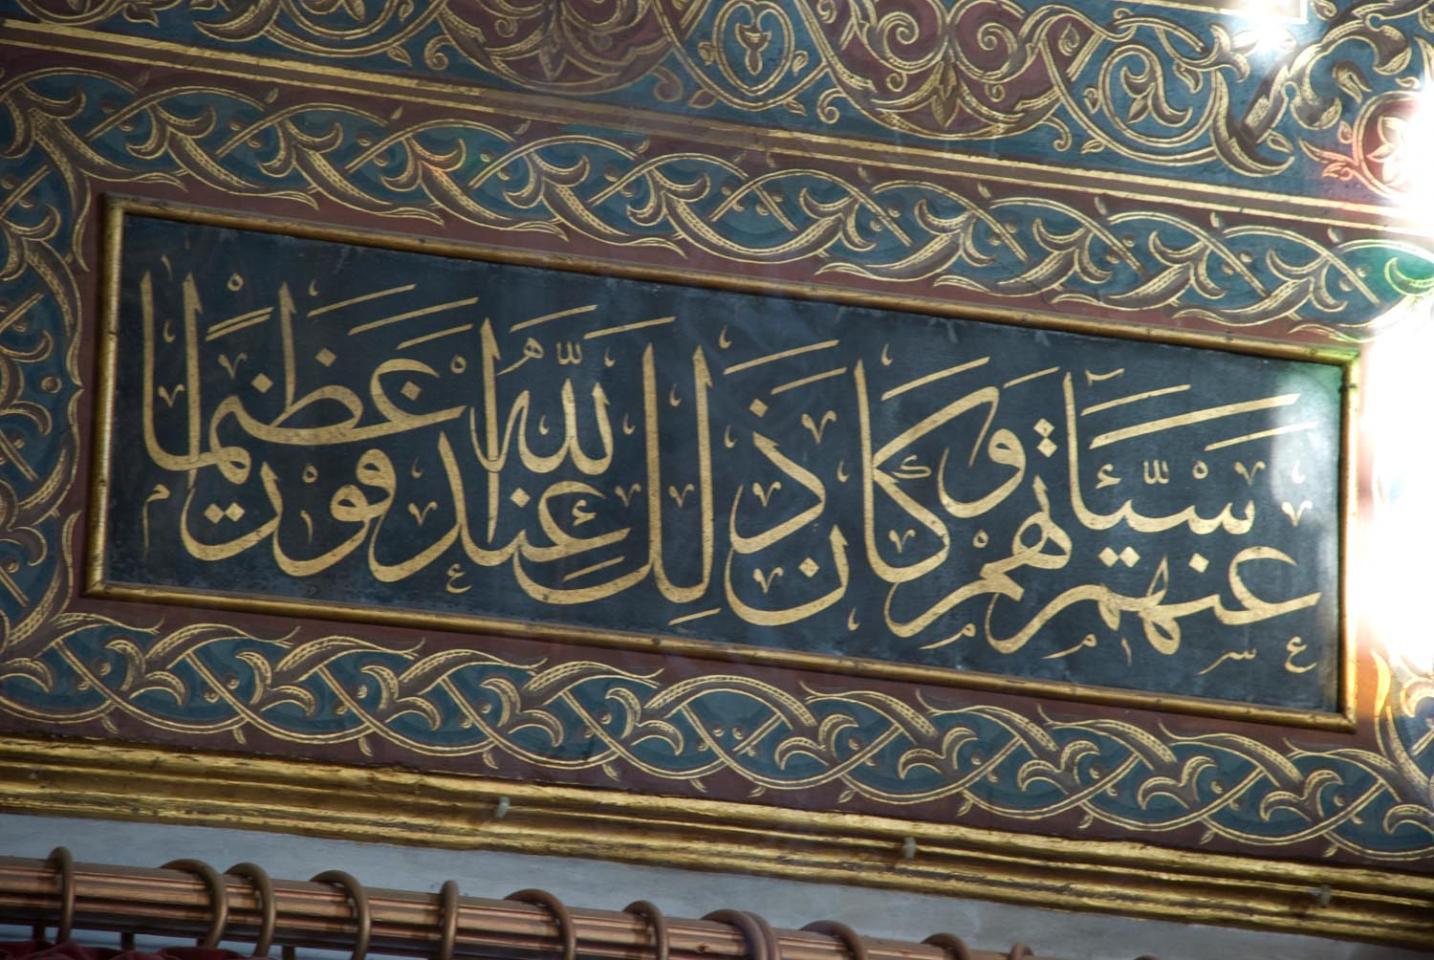 عَنْهُمْ سَيِّئَاتِهِمْ وَكَانَ ذَلِكَ عِنْدَ اللّٰهِ فَوْزًا عَظِيمًا